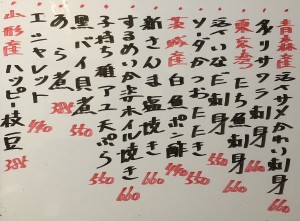 青森産 活〆サワラ刺身 660
活〆サメかわり刺身 660
東京湾 たち魚刺身 660
活〆いなだ刺身 550
ソーダかつおたたき 550
茨城産 白魚ポン酢 440
新さんま塩焼き 660
するめいか丸ホイル焼き 660
子持ち稚アユ天ぷら 550
黒バイ貝煮 550
あら煮 385
エシャレット 440
山形産 ハッピー枝豆 385